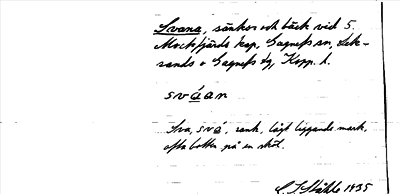 Svana, sänkor och bäck vid S.
Mockfjärds kap, Gagnefs sn, Lek-
sands o Gagnefs tg, Kopp. l.
sváan
Sva, svá, sank, lågt liggande mark,
ofta botten på en
C. I. Ståhle 1935